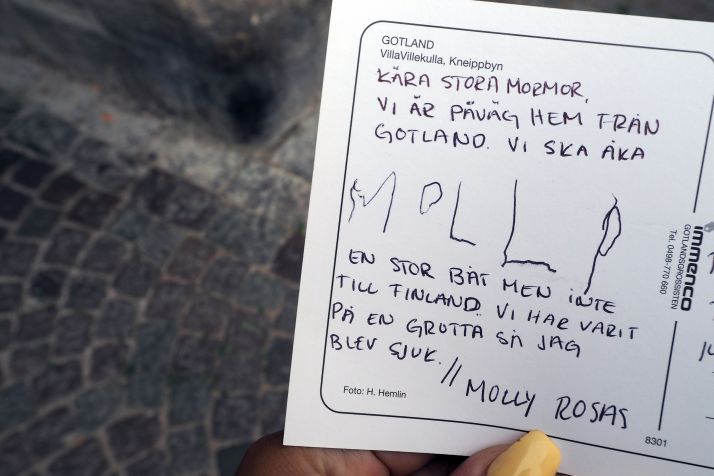 GOTLAND
VillaVillekulla, Kneippbyn
KÄRA STORA MORMOR,
VI ÄR PÅVÄG HEM FRÅN
GOTLAND. VI SKA ÅKA
MOLLY
EN STOR BÅT MEN INTE
TILL FINLAND. VI HAR VARIT
PÅ EN GROTTA SÅ JAG
BLEV SJUK. // MOLLY ROSAS
Foto: H. Hemlin
immenco
GOTLANDSGROSSISTEN
Tel. 0498-770 660
8301